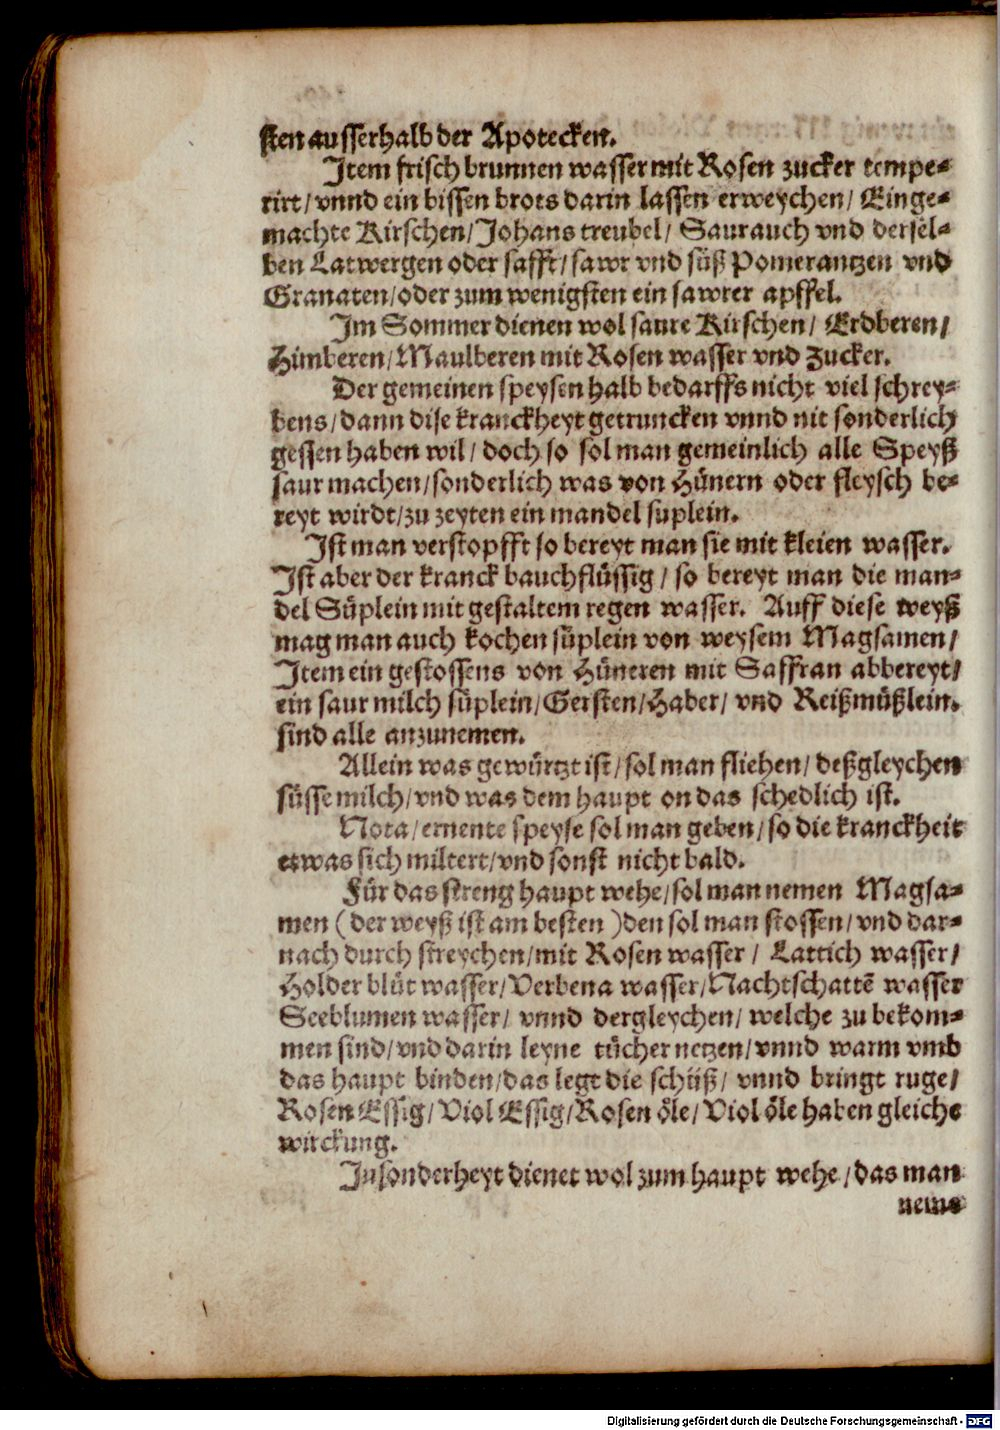 sten ausserhalb der Apotecken.
Item frisch brunnen wasser mit Rosen zucker tempe-
rirt/ vnnd ein bissen brots darin lassen erweychen/ Einge-
machte Kirschen/ Johans treubel/ Saurauch vnd dersel-
ben Latwergen oder safft/ sawr vnd süß Pomerantzen vnd
Granaten/ oder zum wenigsten ein sawrer apffel.
Im Sommer dienen wol saure Kirschen/ Erdberen/
Himberen/ Maulberen mit Rosen wasser vnd Zucker.
Der gemeinen speysen halb bedarffs nicht viel schrey-
bens/ dann dise kranckheyt getruncken vnnd nit sonderlich
gessen haben wil/ doch so sol man gemeinlich alle Speyß
saur machen/ sonderlich was von Hünern oder fleysch be-
reyt wirdt/ zu zeyten ein mandel suplein.
Ist man verstopfft so bereyt man sie mit kleien wasser.
Ist aber der kranck bauchflüssig/ so bereyt man die man-
del Süplein mit gestaltem regen wasser. Auff diese weyß
mag man auch kochen süplein von weysem Magsamen/
Item ein gestossens von Hüneren mit Saffran abbereyt/
ein saur milch süplein/ Gersten/ Haber/ vnd Reißmüßlein.
sind alle anzunemen.
Allein was gewürtzt ist/ sol man fliehen/ deßgleychen
süsse milch/ vnd was dem haupt on das schedlich ist.
Nota/ ernente speyse sol man geben/ so die kranckheit
etwas sich miltert/ vnd sonst nicht bald.
Für das streng haupt wehe/ sol man nemen Magsa-
men ( der weyß ist am besten ) den sol man stossen/ vnd dar-
nach durch streychen/ mit Rosen wasser/ Lattich wasser/
Holder blüt wasser/ Verbena wasser/ Nachtschattē wasser
Seeblumen wasser/ vnnd dergleychen/ welche zu bekom-
men sind/ vnd darin leyne tücher netzen/ vnnd warm vmb
das haupt binden/ das legt die schüß/ vnnd bringt ruge/
Rosen Essig/ Viol Essig/ Rosen öle/ Viol öle haben gleiche
wirckung.
Insonderheyt dienet wol zum haupt wehe/ das man
neme
Digitalisierung gefördert durch die Deutsche Forschungsgemeinschaft - DFG